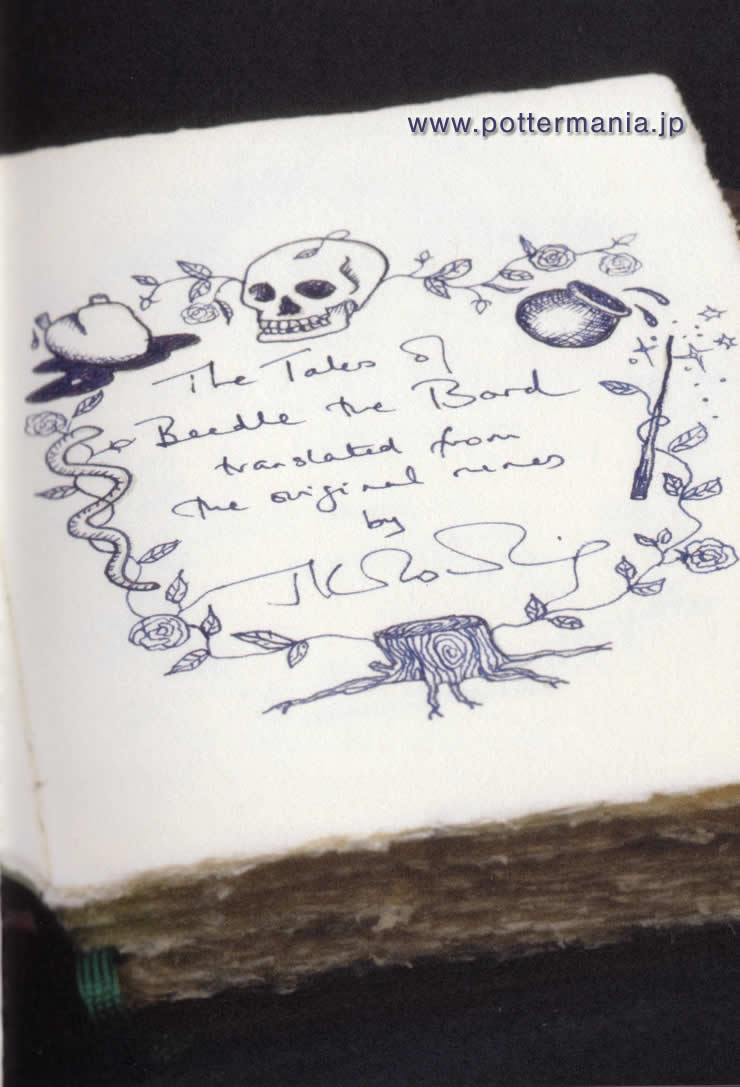 www.pottermania.jp
The Tales of
Beedle the Bard
translated from
the original runes
by
JK Rowling